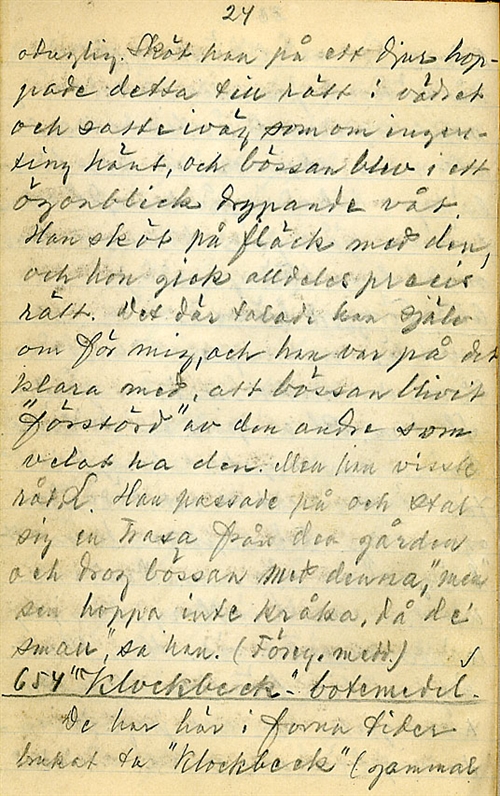 24
oduglig. Sköt han på ett djur hop-
pade detta till rätt i vädret
och satte iväg som om ingen-
ting hänt, och bössan blev i ett
ögonblick drypande våt.
Han sköt på fläck med den,
och hon gick alldeles precis
rätt. Det där talade han själv
om för mig, och han var på det
klara med, att bössan blivit
"förstörd" av den andre som
velat ha den. Men han visste
råd. Han passade på och stal
sig en trasa från den gården
och drog bössan med denna, "men
sen hoppa inte kråka, då de'
small", sa han. (Föreg. medd.)
654 "Klockbeck"- botemedel.
De har här i forna tider
brukat ta "Klockbeck" (gammal